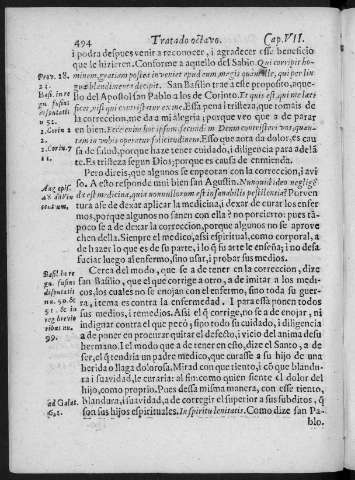 494 Tratado octavo. Cap. VII.
i podra despues venir a reconocer, i agradecer esse beneficio
que le hizieren. Conforme a aquello del Sabio. Qui corripit ho-
Prov. 28. minem, gratiam postea inveniet apud eum, magis quàm ille, qui per lin-
guæ blandimenta decipit. San Basilio trae a este proposito, aque-
llo del Apostol san Pablo a los de Corinto. Et quis est, qui me læti-
ficet, nisi qui contristatur ex me. Essa pena i tristeza, que tomais de
la correccion, me da a mi alegria; porque veo que a de parar
2. Corin. 2 en bien. Ecce enim hoc ipsum, secundùm Deum contristari vos, quan-
tam in vobis operatur sollicitudinem. Esso que aora da dolor, es cau
2. Corin. 7. sa de salud, porque haze tener cuidado, i diligencia para adelã-
11. te. Es tristeza segun Dios; porque es causa de enmienda.
Pero direis, que algunos se empeoran con la correccion, i avi
so. A esto responde mui bien san Agustin. Nunquid ideo negligẽ
da est medicina, quia nonnullorum est insanabilis pestilentia? Por ven
tura ase de dexar aplicar la medicina, i dexar de curar los enfer
mos, porque algunos no sanen con ella? no por cierto: pues tã-
poco se a de dexar la correccion, porque algunos no se aprove
chen della. Siempre el medico, assi espiritual, como corporal, a
de hazer lo que es de su parte, i lo q̃ su arte le enseña; i no desa
fuciar luego al enfermo, sino usar, i probar sus medios.
Cerca del modo, que se a de tener en la correccion, dize
san Basilio, que el que corrige a otro, a de imitar a los medi-
cos, los cuales no se enojan con el enfermo, sino toda su guer
ra, i tema es contra la enfermedad. I para essa ponen todos
sus medios, i remedios. Assi el q̃ corrige, no se a de enojar, ni
indignar contra el que pecò; sino todo su cuidado, i diligencia
99. a de poner en procurar quitar el defecto, i vicio del anima de su
hermano. I el modo que a de tener en esto, dize el Santo, a de
ser, el q̃ tendria un padre medico, que curasse a su hijo de una
herida o llaga dolorosa. Mirad con que tiento, i cõ que blandu-
ra i suavidad, le curaria: al fin como quien siente el dolor del
hijo, como proprio. Pues dessa misma manera, con esse tiento,
ad Galat. blandura, i suavidad, a de corregir el superior a sus subditos, q̃
6, 1. son sus hijos espirituales. In spiritu lenitatis. Como dize san Pa-
blo.